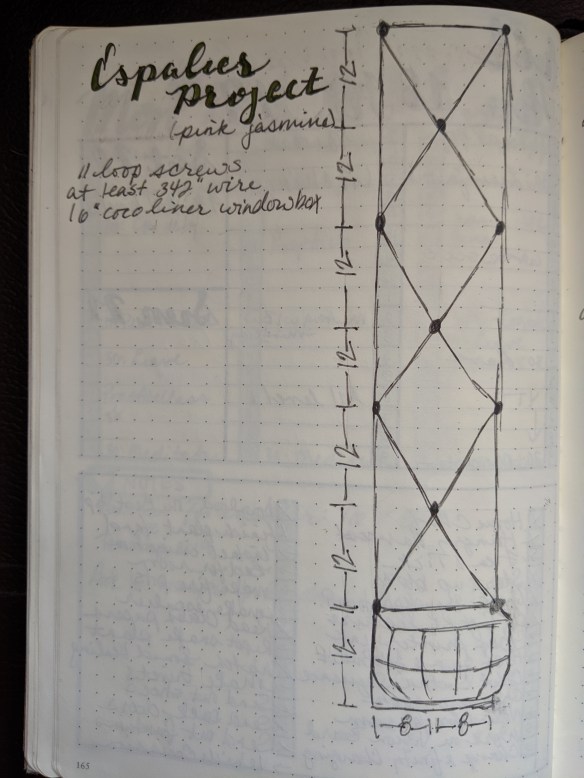 Espalier
Project
(pink jasmine)
11 loop screws
at least 342" wire
16" coco liner windowbox
12
12
12
12
12
12
12
8 8
163